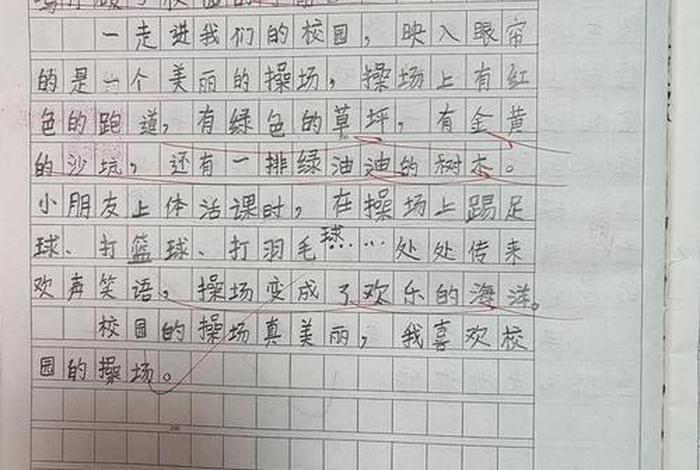 一走进我们的校园，映入眼帘
的是一个美丽的操场，操场上有红
色的跑道，有绿色的草坪，有金黄
的沙坑，还有一排绿油油的树木。
小朋友上体活课时，在操场上踢足
球、打篮球、打羽毛球……处处传来
欢声笑语，操场变成了欢乐的海洋。
校园的操场真美丽，我喜欢校
园的操场。